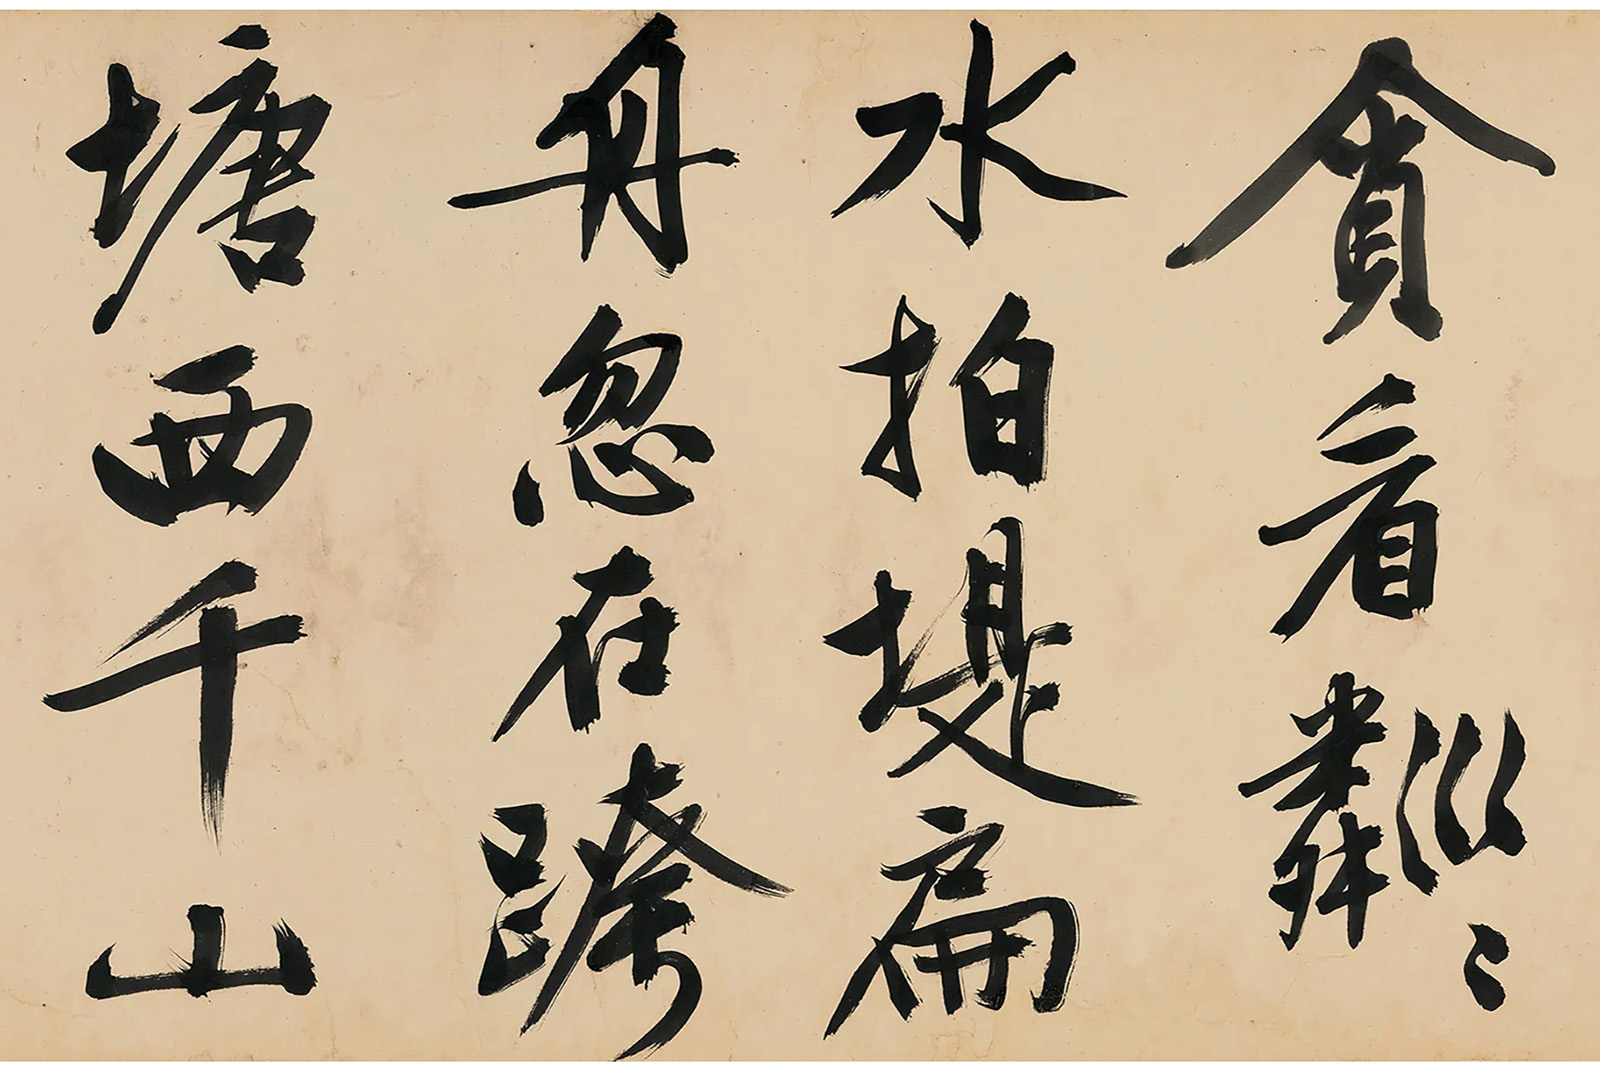 貪看粼々
水拍堤扁
舟忽在跨
塘西千山